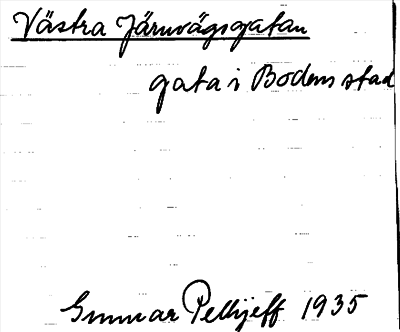 Västra Järnvägsgatan
gata i Bodens stad
Gunnar Pellijeff 1935